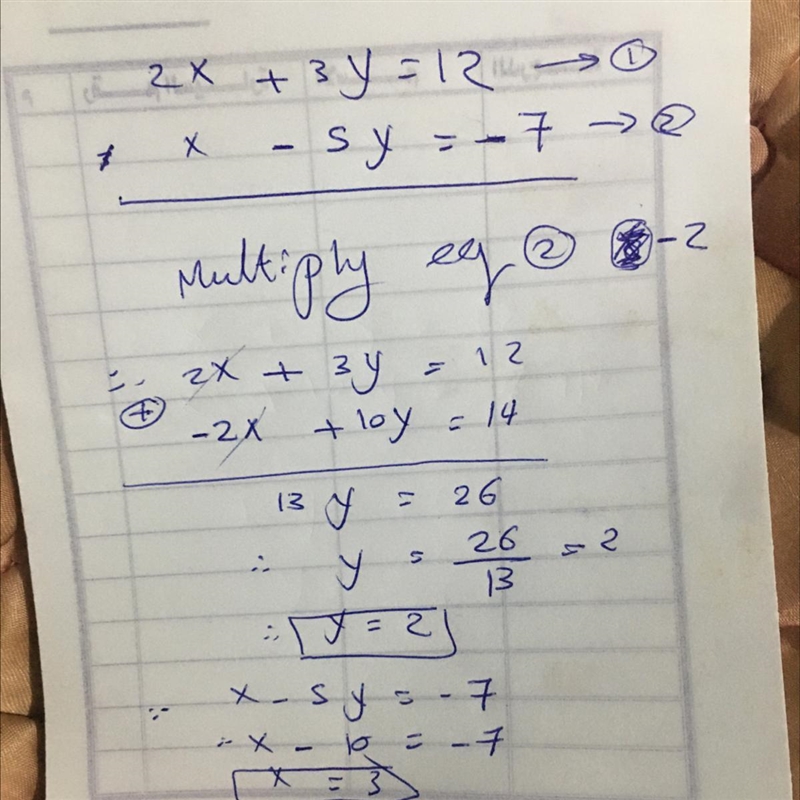 2x + 3y = 12 → ①
x - 5y = -7 → ②
Multiply eq ② -2
∴ 2x + 3y = 12
⊕ -2x + 10y = 14
13 y = 26
∴ y = 26/13 = 2
∴ y = 2
∵ x - 5y = -7
∴ x - 10 = -7
x = 3